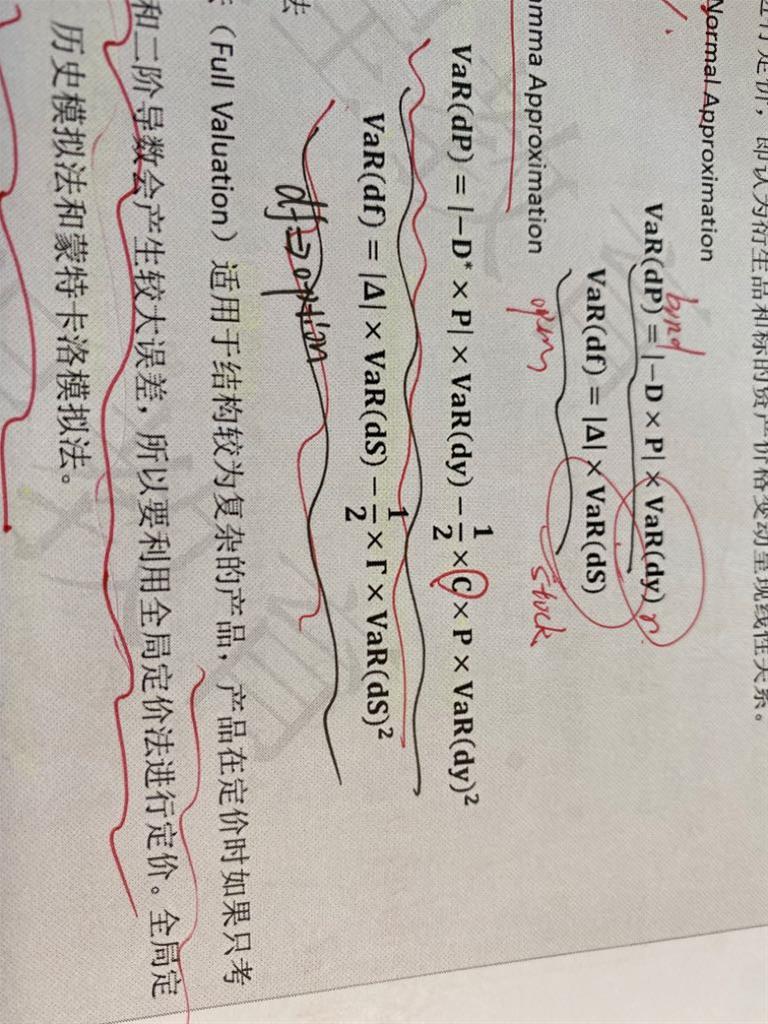 进行定价，即认为衍生品和标的资产价格变动呈现线性关系。
Normal Approximation
bond
VaR(dP) = |−D × P| × VaR(dy) r
VaR(df) = |Δ| × VaR(dS)
stock
mma Approximation
VaR(dP) = |−D* × P| × VaR(dy) − 1/2 × C × P × VaR(dy)²
VaR(df) = |Δ| × VaR(dS) − 1/2 × Γ × VaR(dS)²
df → option
法
（Full Valuation）适用于结构较为复杂的产品，产品在定价时如果只考
和二阶导数会产生较大误差，所以要利用全局定价法进行定价。全局定
历史模拟法和蒙特卡洛模拟法。